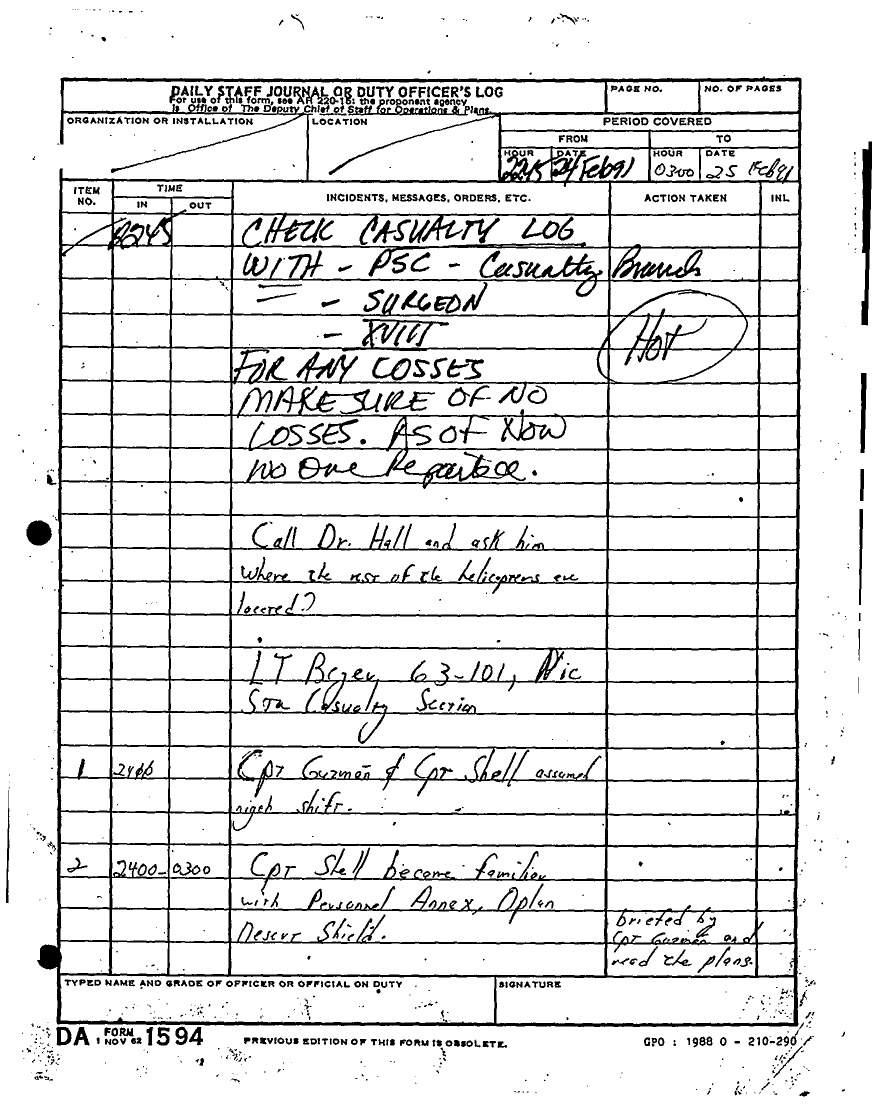 DAILY STAFF JOURNAL OR DUTY OFFICER'S LOG
For use of this form, see AR 220-15; the proponent agency
is Office of The Deputy Chief of Staff for Operations & Plans.
PAGE NO.
NO. OF PAGES
ORGANIZATION OR INSTALLATION
LOCATION
PERIOD COVERED
FROM
TO
HOUR
DATE
HOUR
DATE
2245
24 Feb 91
0300
25 Feb 91
ITEM NO.
TIME
IN
OUT
INCIDENTS, MESSAGES, ORDERS, ETC.
ACTION TAKEN
INL
2245
CHECK CASUALTY LOG
WITH - PSC - Casualty Branch
- SURGEON
- XVIII
HOT
FOR ANY LOSSES
MAKE SURE OF NO
LOSSES. AS OF NOW
No One Reported.
Call Dr. Hall and ask him
where the rest of the helicopters are
located?
LT 63-101,
Casualty Section
1 2400 Cpt Guzmán & Cpt Shell assumed
nigth shift.
2 2400- 0300 Cpt Shell become familiar
with Personnel Annex, Oplan
Desert Shield.
briefed by
Cpt Guzmán and
read the plans.
TYPED NAME AND GRADE OF OFFICER OR OFFICIAL ON DUTY
SIGNATURE
DA FORM 1 NOV 62 1594
PREVIOUS EDITION OF THIS FORM IS OBSOLETE.
GPO : 1988 O - 210-290